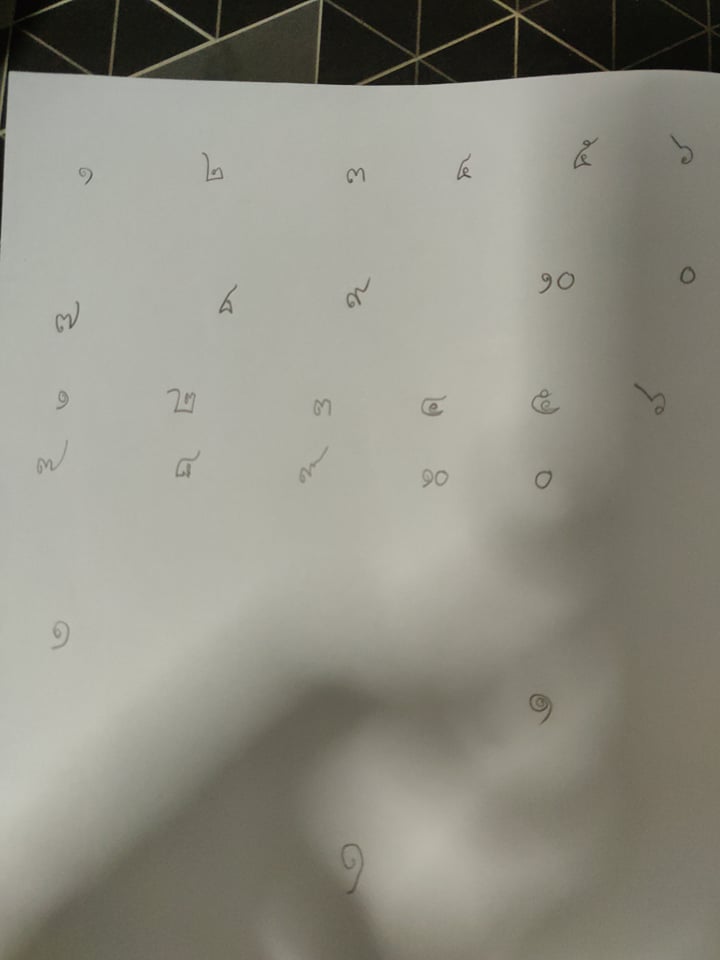 ๑ ๒ ๓ ๔ ๕ ๖
๗ ๘ ๙ ๑๐ ๐
๑ ๒ ๓ ๔ ๕ ๖
๗ ๘ ๙ ๑๐ ๐
๑
๑
๑